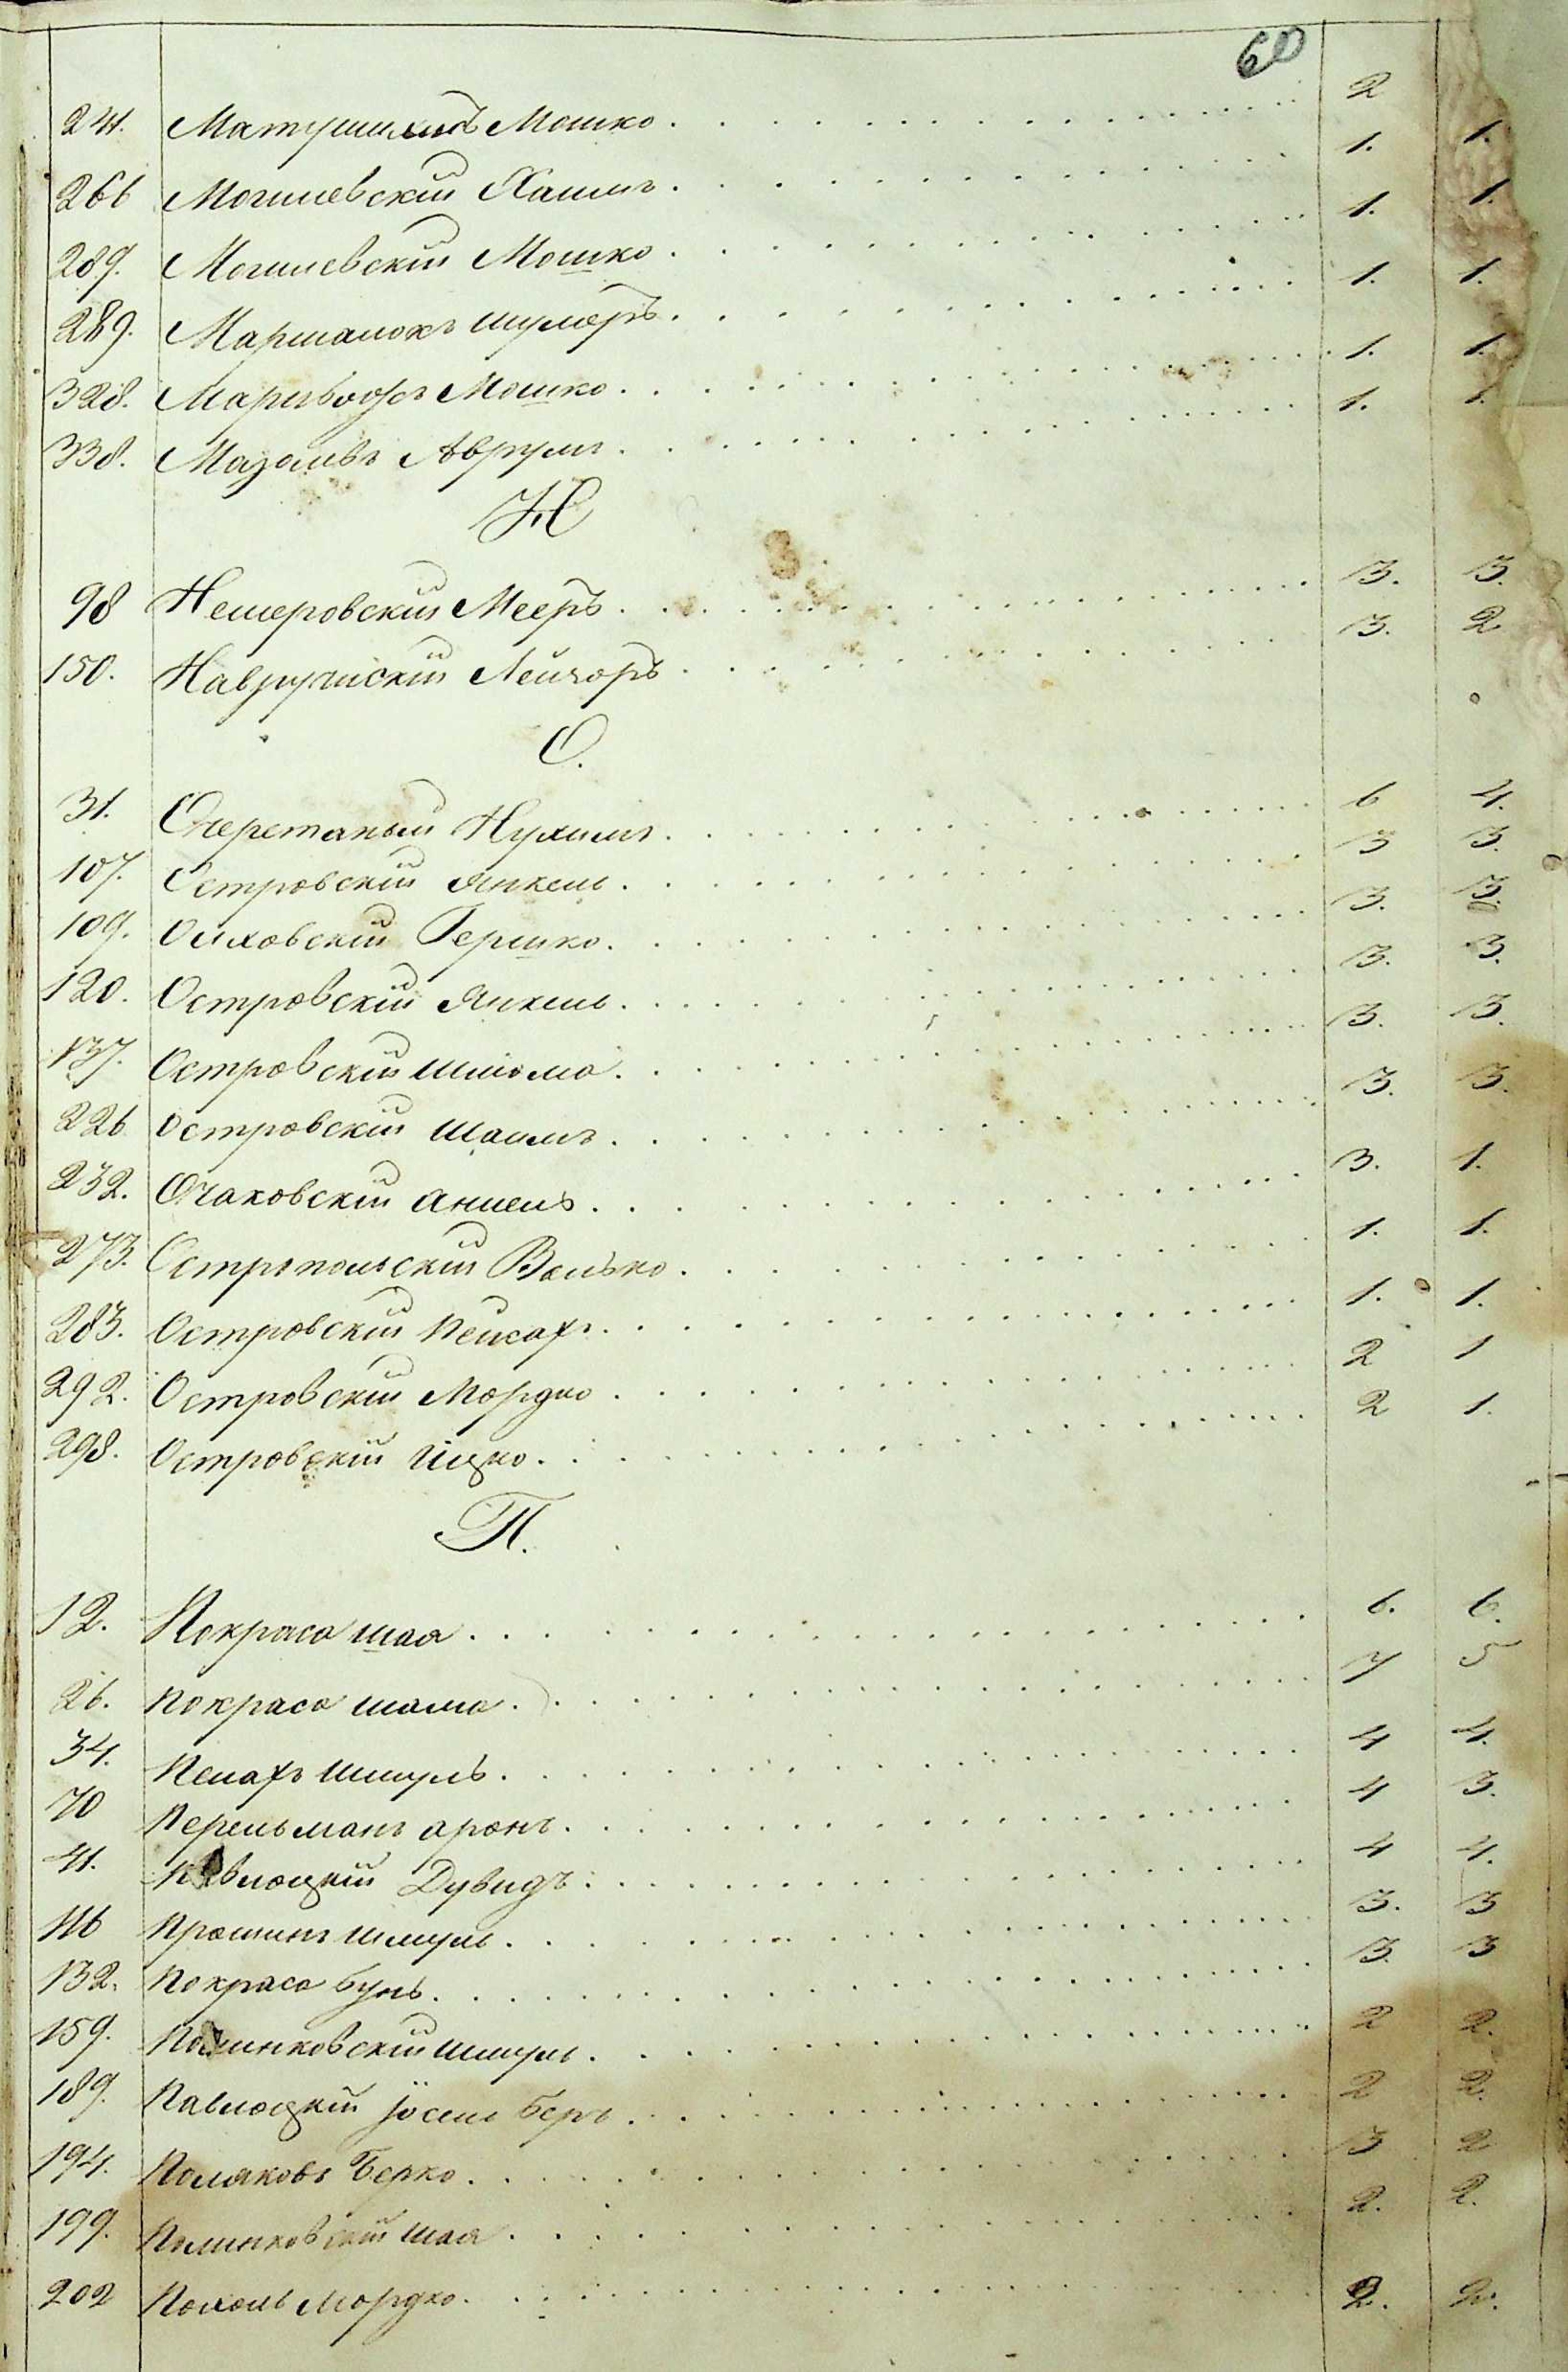 60
241. Матушикъ Мошко 2
266 Могилевскій Хаимъ 1. 1.
289. Могилевскій Мошко 1. 1.
289. Маршалокъ Шулеръ 1. 1.
328. Мошко 1. 1.
338. Аврумъ 1. 1.
Н
98 Немеровскій Мееръ 3. 3.
150. Навручискій Лейзоръ 3. 2
О.
31. Очеретаный Нухимъ 6 4.
107. Островскій Янкель 3 3.
109. Ольховскій Гершко 3. 3.
120. Островскій Янкель 3. 3.
137. Островскій Шліома 3. 3.
226 Островскій Шаимъ 3. 3.
232. Очаковскій Аншель 3. 1.
273. Остропольскій Волько 1. 1.
283. Островскій Пейсахъ 1. 1.
292. Островскій Мордко 2 1
298. Островскій Іцко 2 1.
П.
12. Покраса Шая 6. 6.
26. Покраса Шама 7 5
34. Песахъ Шмуль 4 4.
70 Перельманъ Аронъ 4 3.
41. Павлоцкій Дувидъ 4 4.
116 Шмуль 3. 3
132. Покраса Бунь 3. 3
159. Полинковскій Шмуль 2 2.
189. Павлоцкій Іосель Беръ 2 2.
194. Поляковъ Берко 3 2
199. Полинковскій Шая 2. 2.
202 Мордко 2. 2.